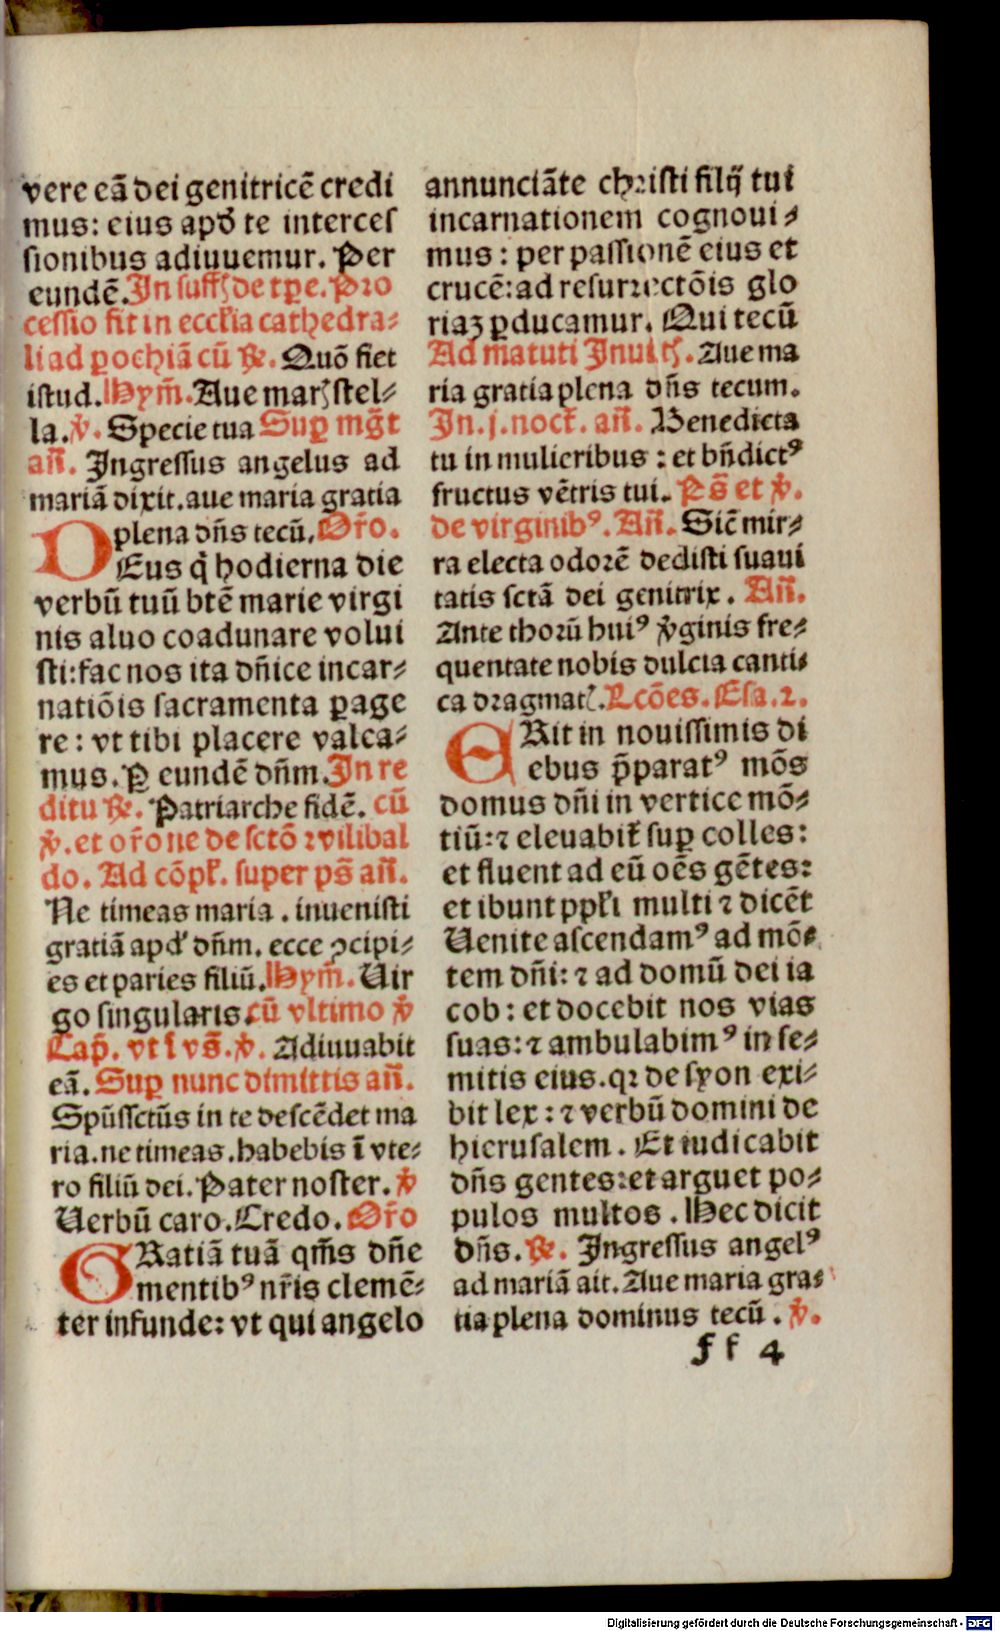 vere eã dei genitricẽ credi
mus: eius apd̕ te interceſ
ſionibus adiuuemur. Per
eundẽ. In ſuffꝭ de tꝑe. Pꝛo
ceſſio fit in eccľia cathedra⸗
li ad ꝑochiã cũ ℟. Quõ fiet
iſtud. Hym̃. Aue marꝭ ſtel⸗
la. ℣. Specie tua Suꝑ mg̃t
añ. Ingreſſus angelus ad
mariã dixit. aue maria gratia
plena dñs tecũ. Oŕo.
DEus q̇ hodierna die
verbũ tuũ btẽ marie virgi
nis aluo coadunare volui
ſti: fac nos ita dñice incar⸗
natiõis ſacramenta ꝑage
re: vt tibi placere valea⸗
mus. Ꝑ eundẽ dñm. In re
ditu ℟. Patriarche fidẽ. cũ
℣. et oŕone de ſctõ ꝛvilibal
do. Ad cõpľ. ſuper pš añ.
Ne timeas maria. inueniſti
gratiã apd̕ dñm. ecce ꝯcipi⸗
es et paries filiũ. Hym̃. Uir
go ſingularis. cũ vltimo ℣
Cap̃. vt ſ vš. ℣. Adiuuabit
eã. Suꝑ nunc dimittis añ.
Spũſſctũs in te deſcẽdet ma
ria. ne timeas. habebis ĩ vte⸗
ro filiũ dei. Pater noſter. ℣
Uerbũ caro. Credo. Oŕo
GRatiã tuã qm̃s dñe
mentibꝰ nŕis clemẽ⸗
ter infunde: vt qui angelo
annunciãte chꝛiſti filij tui
incarnationem cognoui⸗
mus: per paſſionẽ eius et
crucẽ: ad reſurrectõis glo
riaꝫ ꝑducamur. Qui tecũ
Ad matuti Inuitꝭ. Aue ma
ria gratia plena dñs tecum.
In. j. nocť. añ. Benedicta
tu in mulieribus: et bñdictꝰ
fructus vẽtris tui. Pš et ℣.
de virginibꝰ. Añ. Sic̃ mir⸗
ra electa odoꝛẽ dediſti ſuaui
tatis ſctã dei genitrix. Añ.
Ante thoꝛũ huiꝰ v̓ginis fre⸗
quentate nobis dulcia canti⸗
ca dꝛagmatꝭ. Lcões. Eſa. 2.
ERit in nouiſſimis di
ebus p̃paratꝰ mõs
domus dñi in vertice mõ⸗
tiũ: ⁊ eleuabiť ſuꝑ colles:
et fluent ad eũ oẽs gẽtes:
et ibunt ppľi multi ⁊ dicẽt
Uenite aſcendamꝰ ad mõ⸗
tem dñi: ⁊ ad domũ dei ia
cob: et docebit nos vias
ſuas: ⁊ ambulabimꝰ in ſe⸗
mitis eius. qꝛ de ſyon exi⸗
bit lex: ⁊ verbũ domini de
hieruſalem. Et iudicabit
dñs gentes: et arguet po⸗
pulos multos. Hec dicit
dñs. ℟. Ingreſſus angelꝰ
ad mariã ait. Aue maria gra⸗
tia plena dominus tecũ. ℣.
ff 4
Digitalisierung gefördert durch die Deutsche Forschungsgemeinschaft - DFG